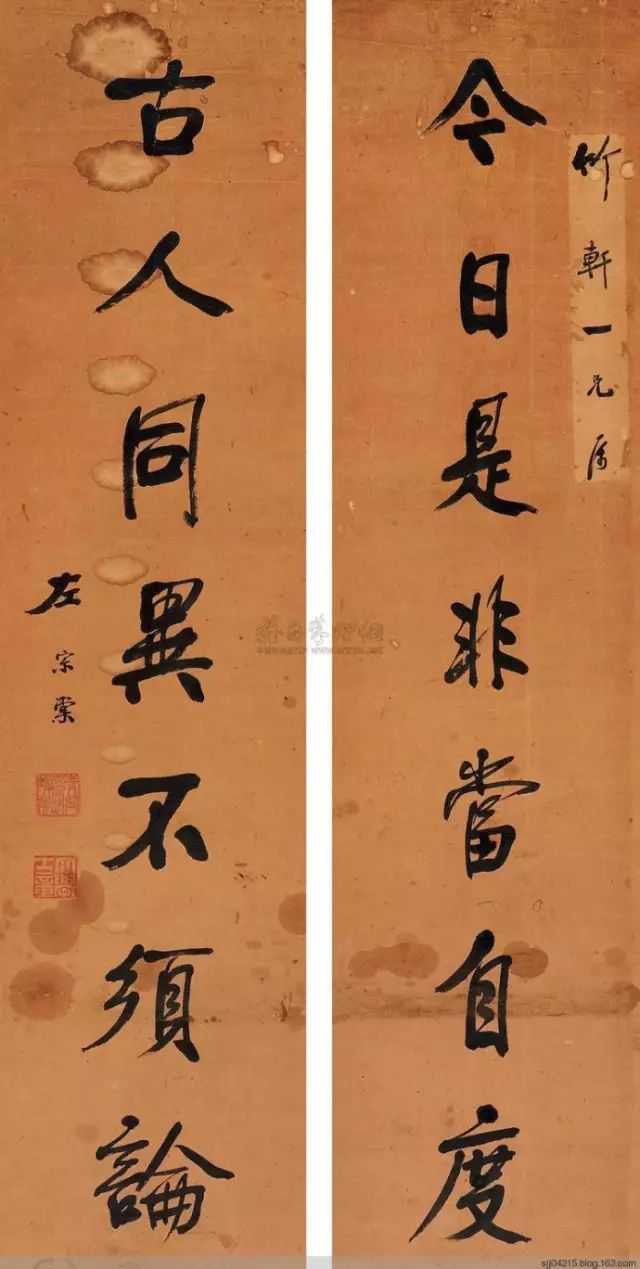 竹軒一兄属
今日是非當自度
古人同異不須論
左宗棠
sjj04215.blog.163.com